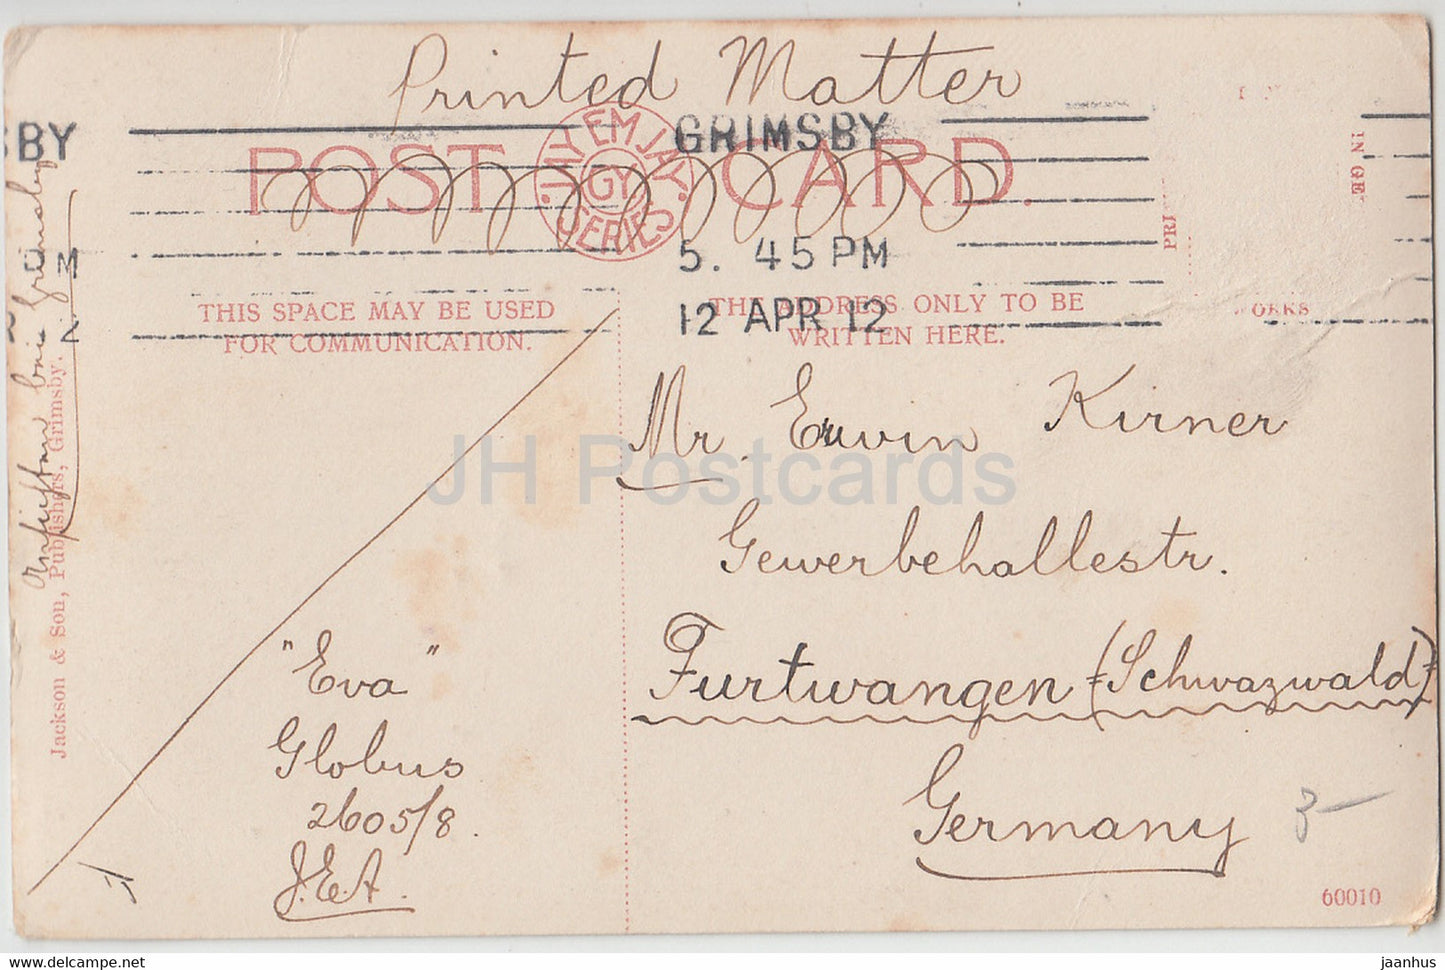 Printed Matter
SBY
GRIMSBY
POST CARD.
JAY EM JAY
GY.
SERIES
IN GE
PRI
5. 45 PM
M
12 APR 12
2
THIS SPACE MAY BE USED
FOR COMMUNICATION.
THE ADDRESS ONLY TO BE
WRITTEN HERE.
ORKS
Mr. Erwin Kirner
Gewerbehallestr.
Furtwangen (Schwazwald)
Germany
"Eva"
Globus
2605/8.
J.E.A.
3-
60010
Jackson & Son, Publishers, Grimsby.
Grimsby
JH Postcards
jaanhus.ee
jaanhus